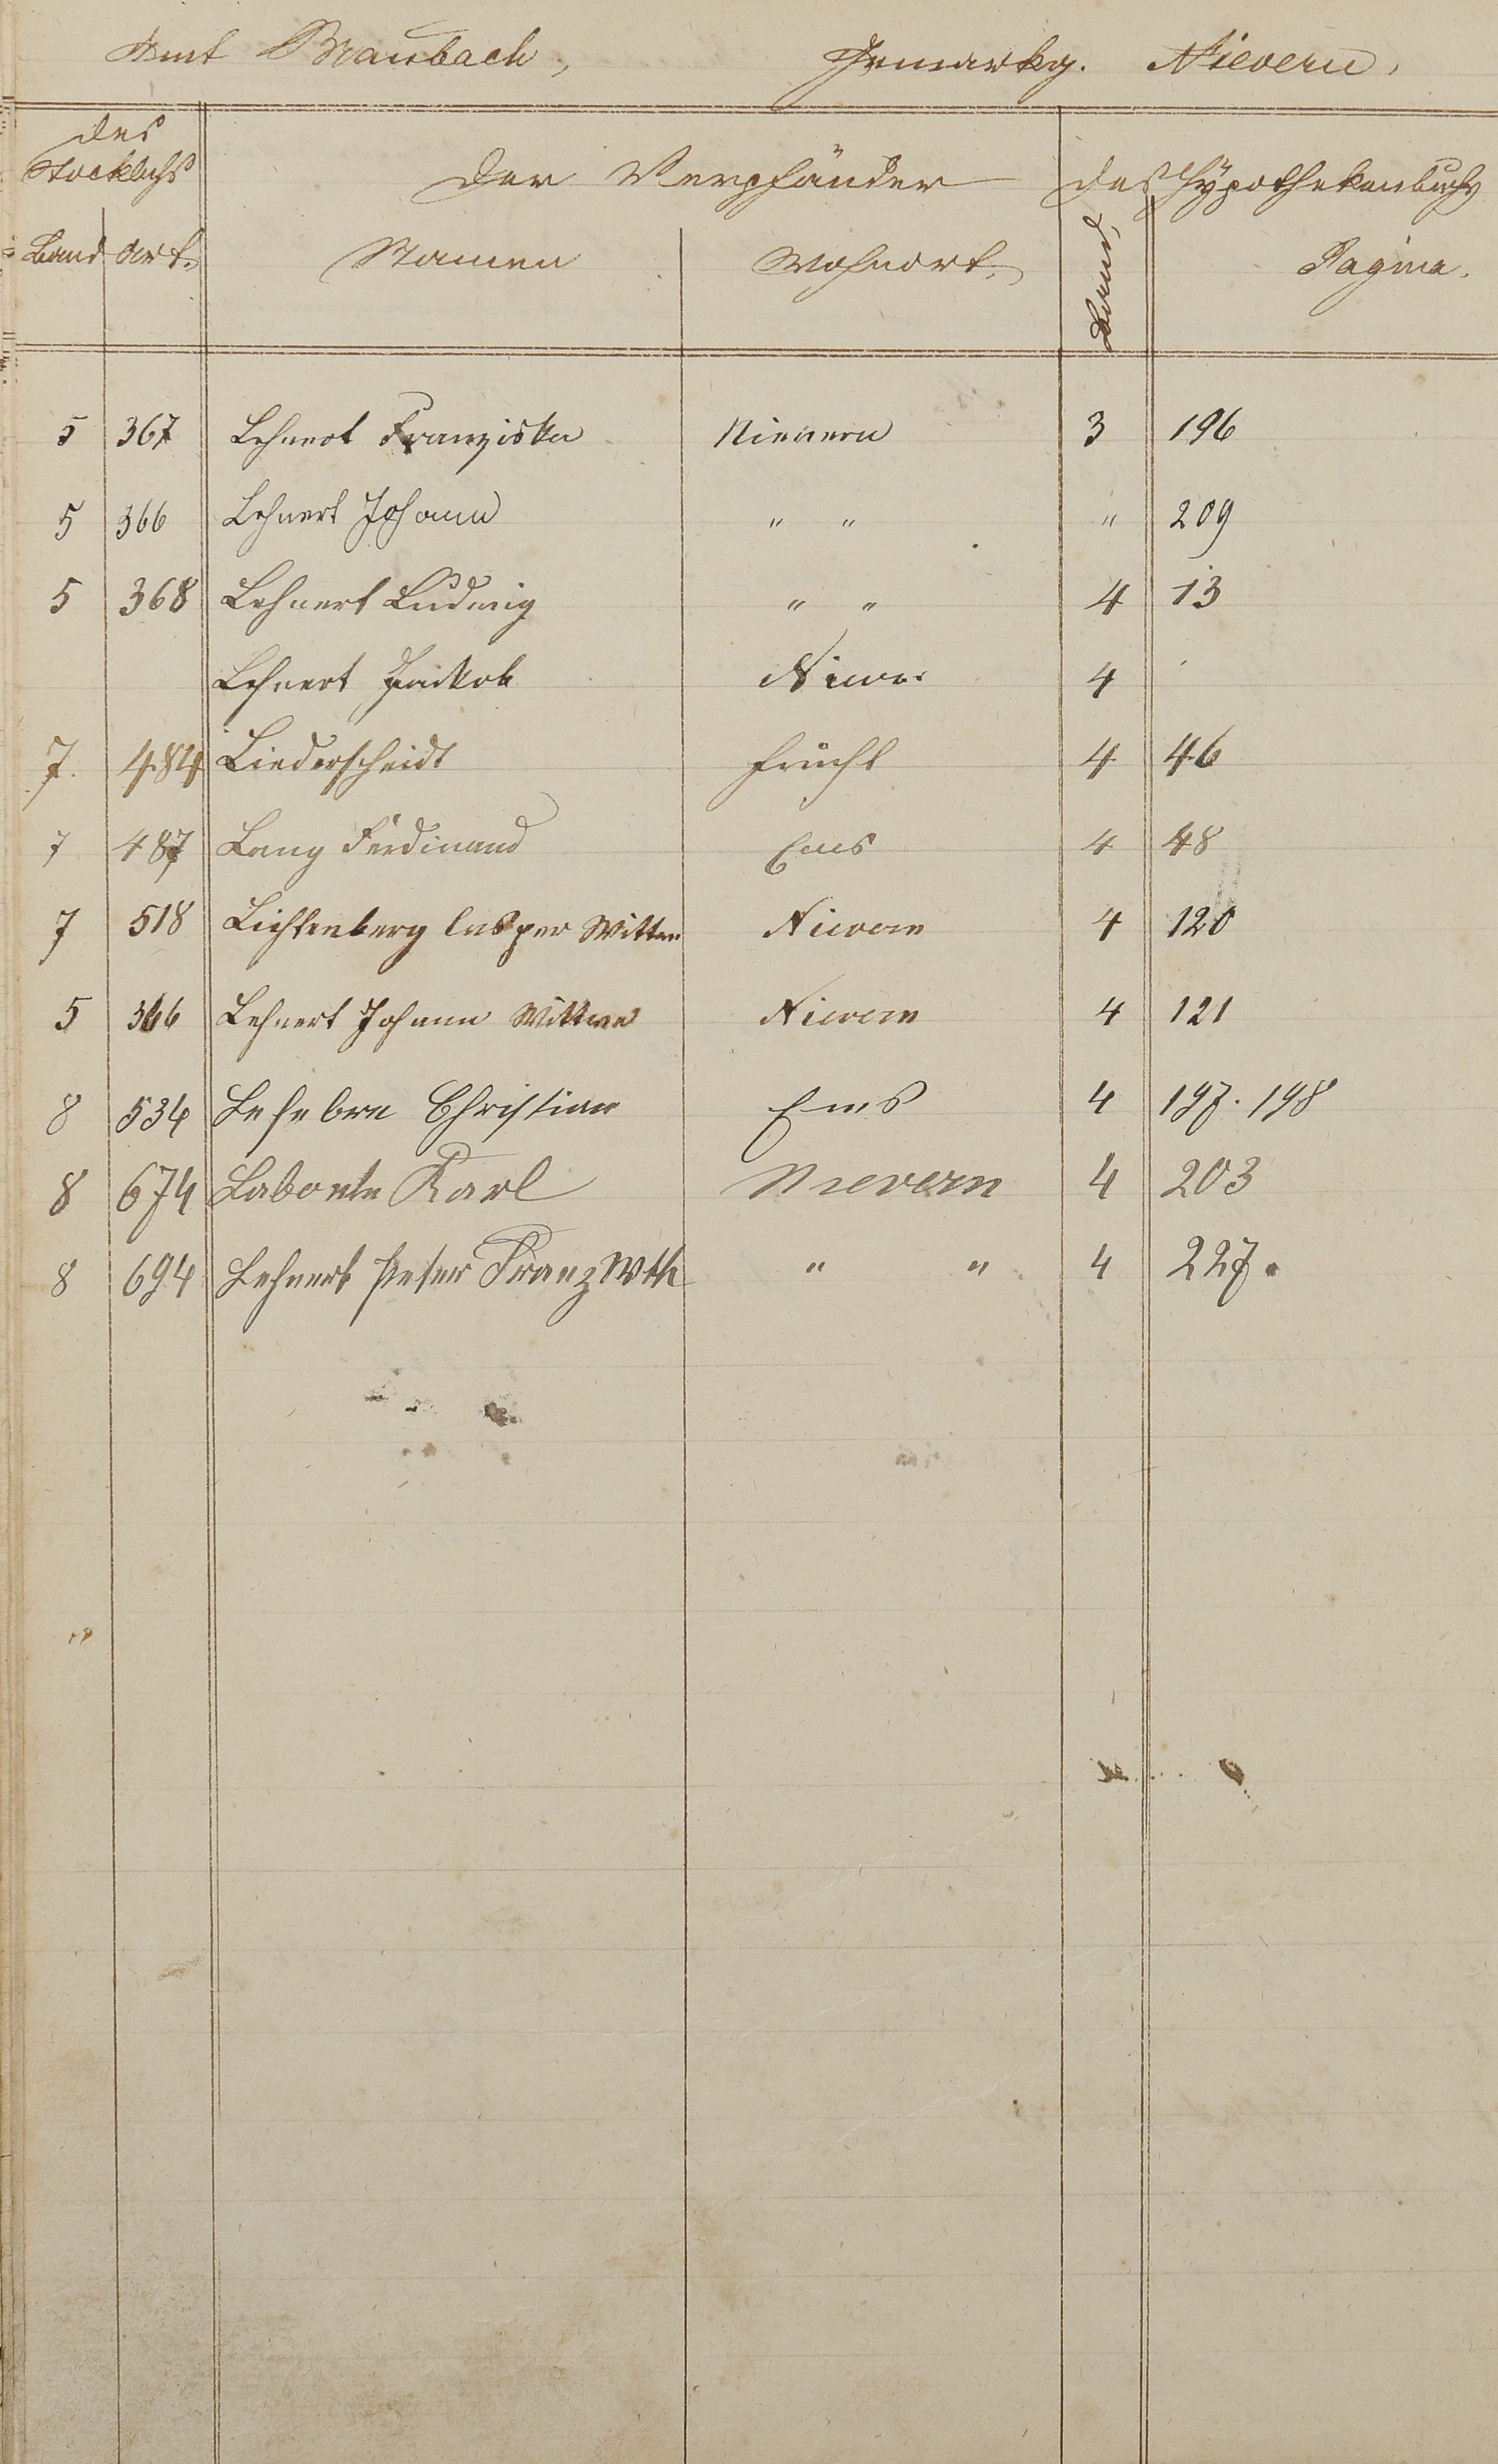 Amt Braubach, Gemarkg. Nievern,
des Stockbuchs Der Verpfänder des Hypothekenbuchs
Band Art. Namen Wohnort. Band, Pagina.
5 367 Lehnert Franziska Nievern 3 196
5 366 Lehnert Johann " " " 209
5 368 Lehnert Ludwig " " 4 13
Lehnert Jackob 4
7. 484 Liederscheidt Frücht 4 46
7 487 Lang Ferdinand Ems 4 48
7 518 Lichtenberg Casper Wittwe Nievern 4 120
5 366 Lehnert Johann Wittwe Nievern 4 121
8 534 Lefebre Christian Ems 4 197. 198
8 674 Labonte Karl Nievern 4 203
8 694 Lehnert Peter Franz Wtb " " 4 227.